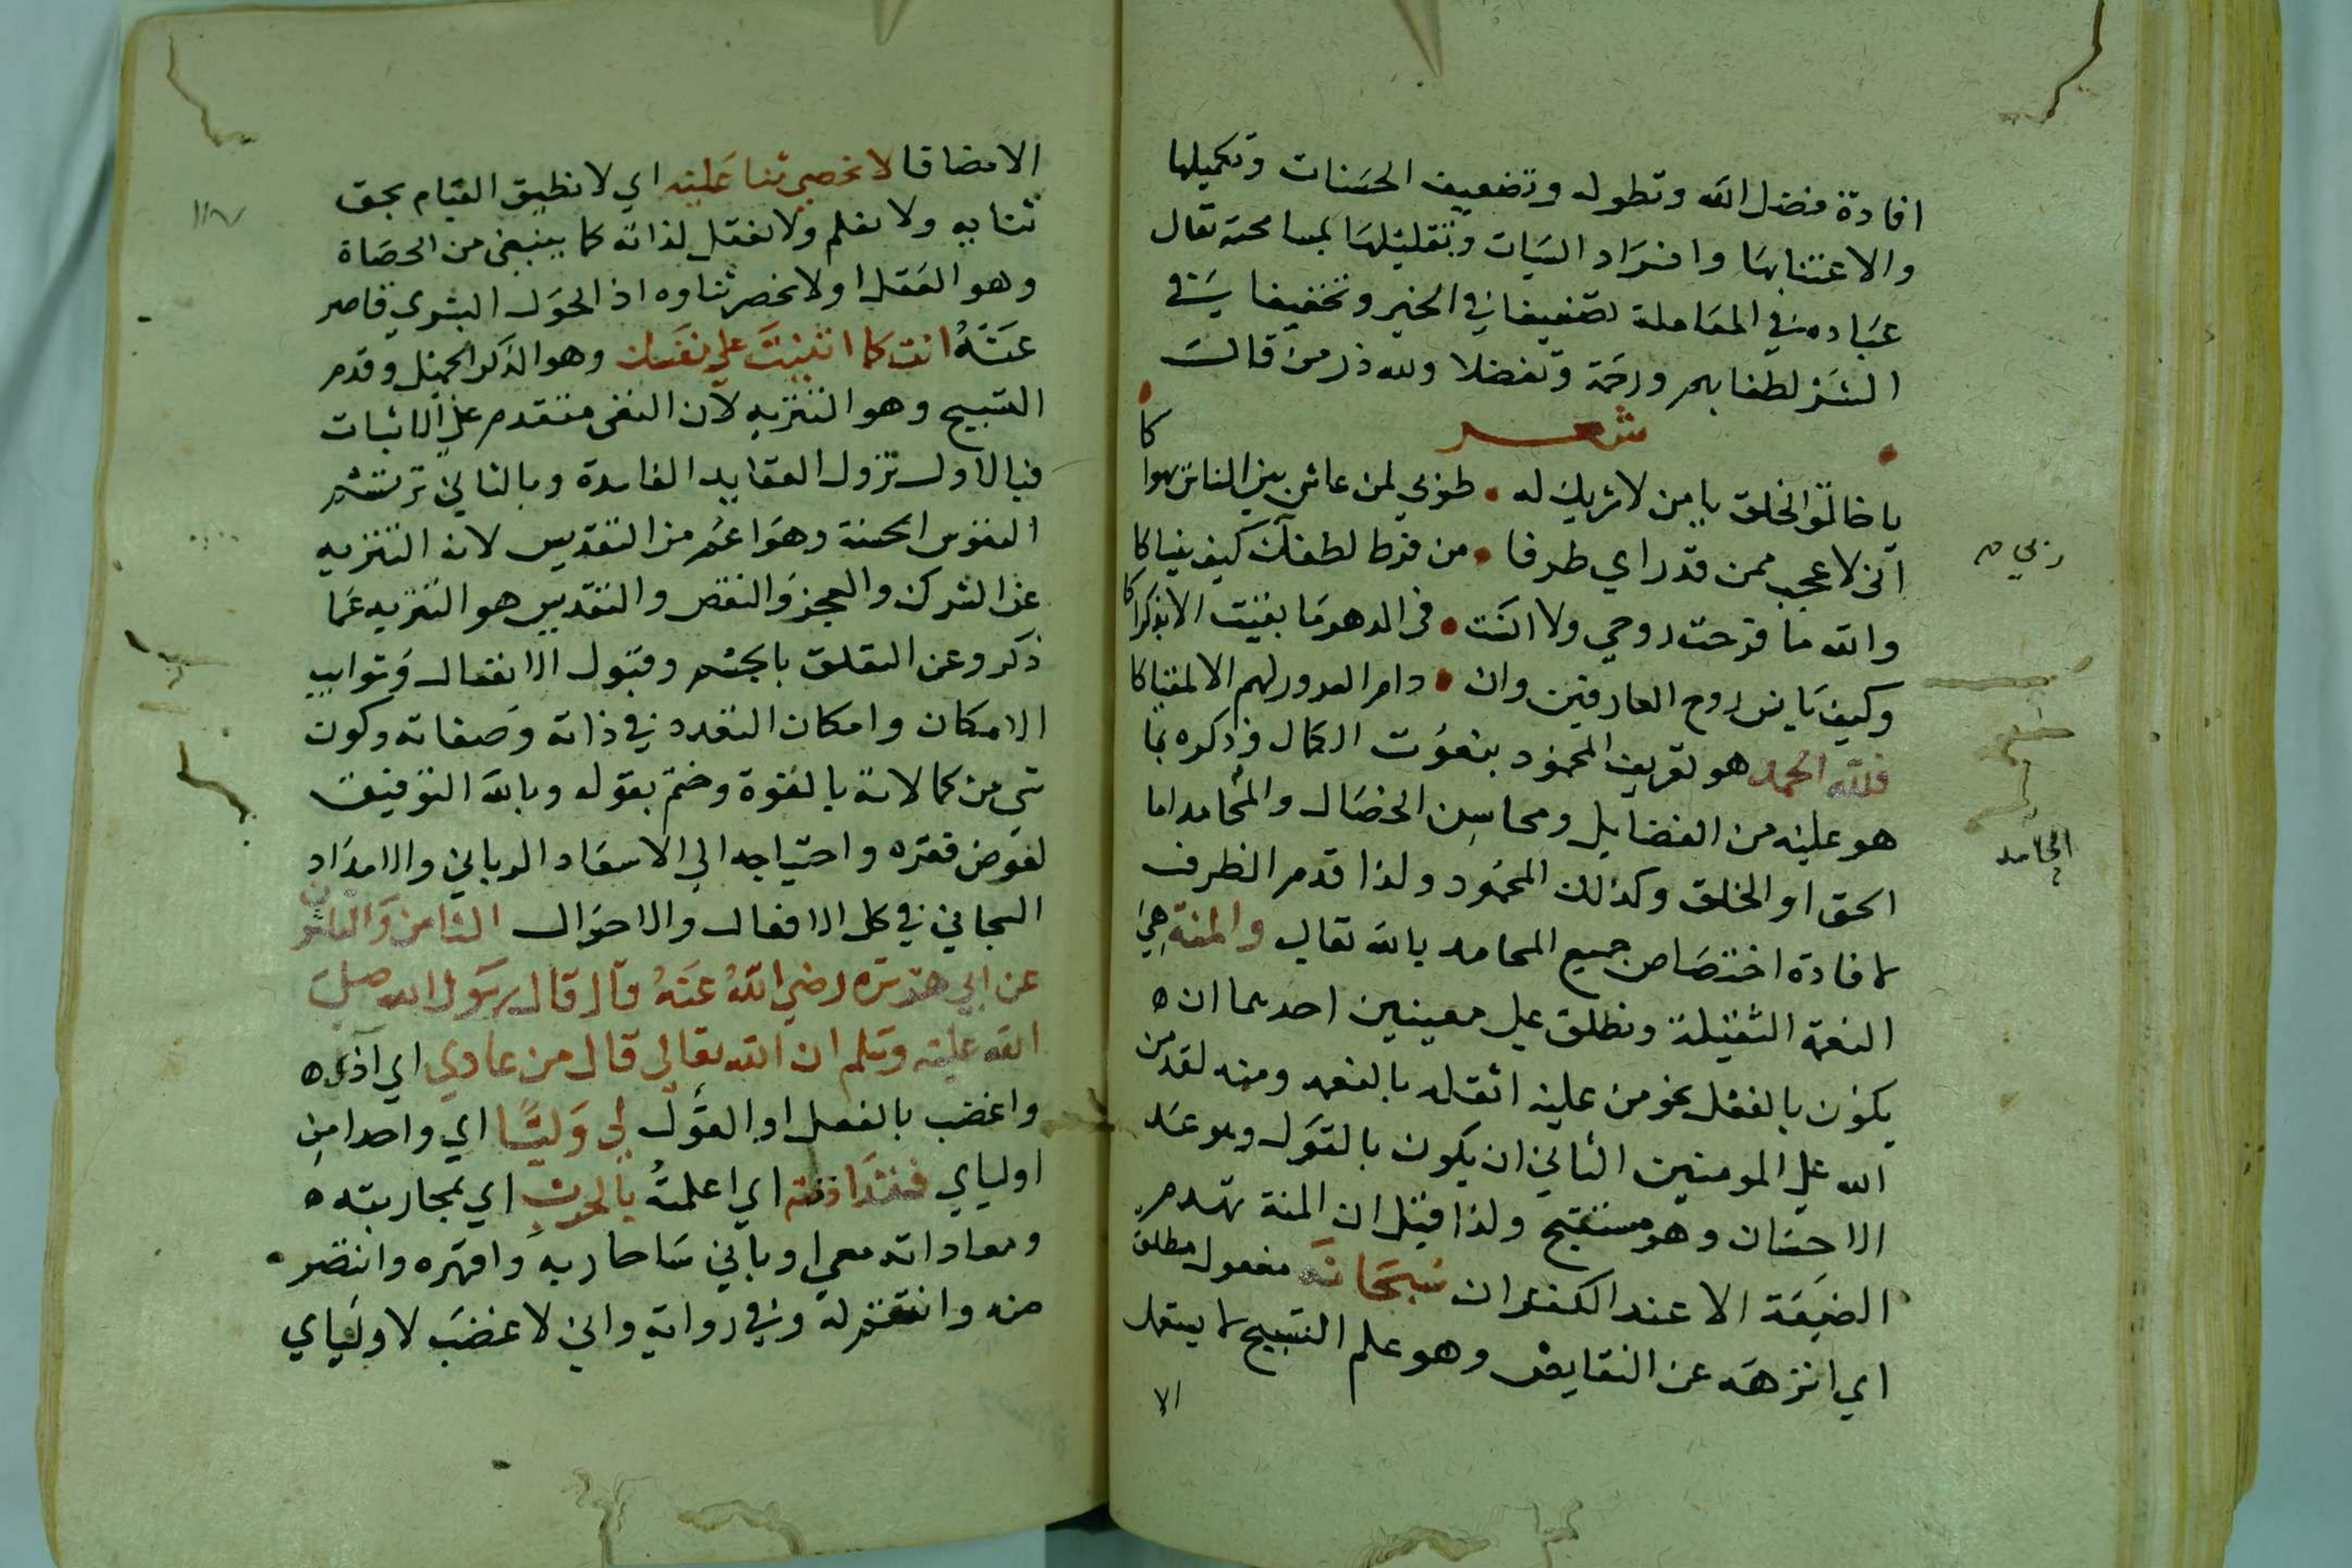 افادة فضل الله وتطوله وتضعيف الحسنات وتكميلها
والاعتنابها وافراد السيات وتقليلها بمسامحته تعال
عباده في المعاملة تضعيفا في الخير وتخفيفا في
الشر لطفا بهم ورحمة وتفضلا ولله در من قال
شعر
يا خالق الخلق يا من لا شريك له • طوبي لمن عاش بين الناس يهواكا
اني لاعجب ممن قد راي طرفا • من فرط لطفك كيف ينساكا
ربي
والله ما فرحت روحي ولا انست • في الدهر ما بقيت الا بذكراكا
وكيف يانس روح العارفين وان • دام السرور لهم الا لقياكا
فلله الحمد هو تعريف المحمود بنعوت الكمال وذكره بما
هو عليه من الفضايل ومحاسن الخصال والمحامد اما
الحامد
الحق او الخلق وكذلك المحمود ولذا قدم الظرف
لافادة اختصاص جميع المحامد بالله تعالي والمنة هي
النعمة الثقيلة وتطلق علي معنيين احدهما ان
يكون بالفعل نحو من عليه اثقله بالنعمه ومنه لقد من
الله علي المومنين الثاني ان يكون بالقول وهو عند
الاحسان وهو مستقبح ولذا قيل ان المنة تهدم
الصنيعة الا عند الكفران سبحانه مفعول مطلق
اي انزهه عن النقايص وهو علم التسبيح لا يستعمل
الا
الا مضافا لا نحصي ثنا عليه اي لا نطيق القيام بحق
ثنايه ولا نعلم ولا نعقل لذاته كما ينبغي من الحصاة
وهو العقل او لا نحصر ثناوه اذ الحول البشري قاصر
عنه انت كما اثنيت علي نفسك وهو الذكر الجميل وقدم
التسبيح وهو التنزيه لان النفي متقدم علي الاثبات
فبالاول تزول العقايد الفاسدة وبالثاني ترتسم
النفوس الحسنة وهو اعم من التقديس لانه التنزيه
عن الشرك والعجز والنقص والتقديس هو التنزيه عما
ذكر وعن التعلق بالجسم وقبول الانفعال وشوايب
الامكان وامكان التعدد في ذاته وصفاته وكون
شي من كمالاته بالقوة وختم بقوله وبالله التوفيق
لفرض فقره واحتياجه الي الاسعاد الرباني والامداد
السبحاني في كل الافعال والاحوال الثامن والثلثون
عن ابي هريره رضي الله عنه قال قال رسول الله صلي
الله عليه وسلم ان الله تعالي قال من عادي اي آذي
واغضب بالفعل او القول لي وليا اي واحدا من
اوليايي فقد اذنته اي اعلمته بالحرب اي بمحاربته
ومعاداته معي او باني ساحاربه واقهره وانتصر
منه وانتقم له وفي رواية واني لاغضب لاوليايي